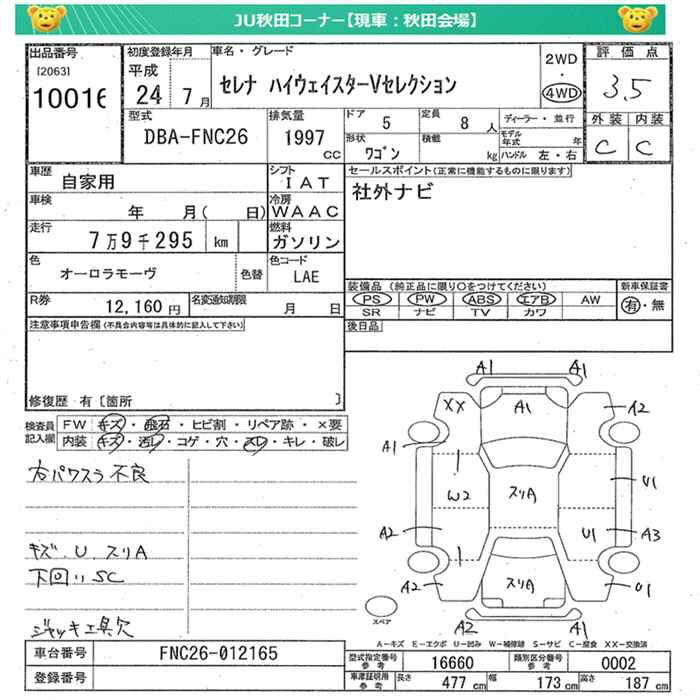 JU秋田コーナー【現車：秋田会場】
出品番号
[2063]
10016
初度登録年月
平成
24 7月
車名・グレード
セレナ ハイウェイスターVセレクション
2WD
・
4WD
評価点
3.5
外装 内装
C C
型式
DBA-FNC26
排気量
1997
CC
ドア
5
定員
8 人
ディーラー・並行
形状
ワゴン
積載
kg
モデル年式 年
ハンドル 左・右
車歴
自家用
シフト
IAT
車検
年 月( 日)
冷房
WAAC
走行
7万9千295 km
燃料
ガソリン
色
オーロラモーヴ
色替
色コード
LAE
R券
12,160 円
名変通知期限
月 日
セールスポイント(正常に機能するものに限ります)
社外ナビ
装備品 (純正品に限り○をつけてください)
PS PW ABS エアB AW
SR ナビ TV カワ
新車保証書
有・無
後日品
注意事項申告欄(不具合内容等は具体的に記入して下さい)
修復歴 有[箇所 ]
検査員記入欄
FW キズ・飛石・ヒビ割・リペア跡・×要
内装 キズ・汚れ・コゲ・穴・スレ・キレ・破レ
右パワスラ不良
キズ.U.スリA
下回りSC
ジャッキ工具欠
A1 A1
XX A1 A2
A1
U1
W2 スリA
A2 U1 A3
A2 スリA U1
A2 A1
スペア
A－キズ E－エクボ U－凹み W－補修跡 S－サビ C－腐食 XX－交換済
車台番号
FNC26-012165
登録番号
型式指定番号
参考
16660
類別区分番号
参考
0002
車庫証明用
参考
長さ 477 cm 幅 173 cm 高さ 187 cm